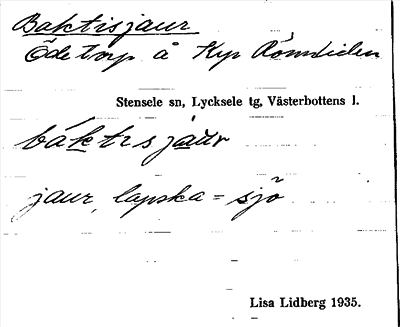 Baktisjaur
Ödetorp å Kyr Rönnliden
Stensele sn, Lycksele tg, Västerbottens l.
báktisjàur
jaur, lapska = sjö
Lisa Lidberg 1935.